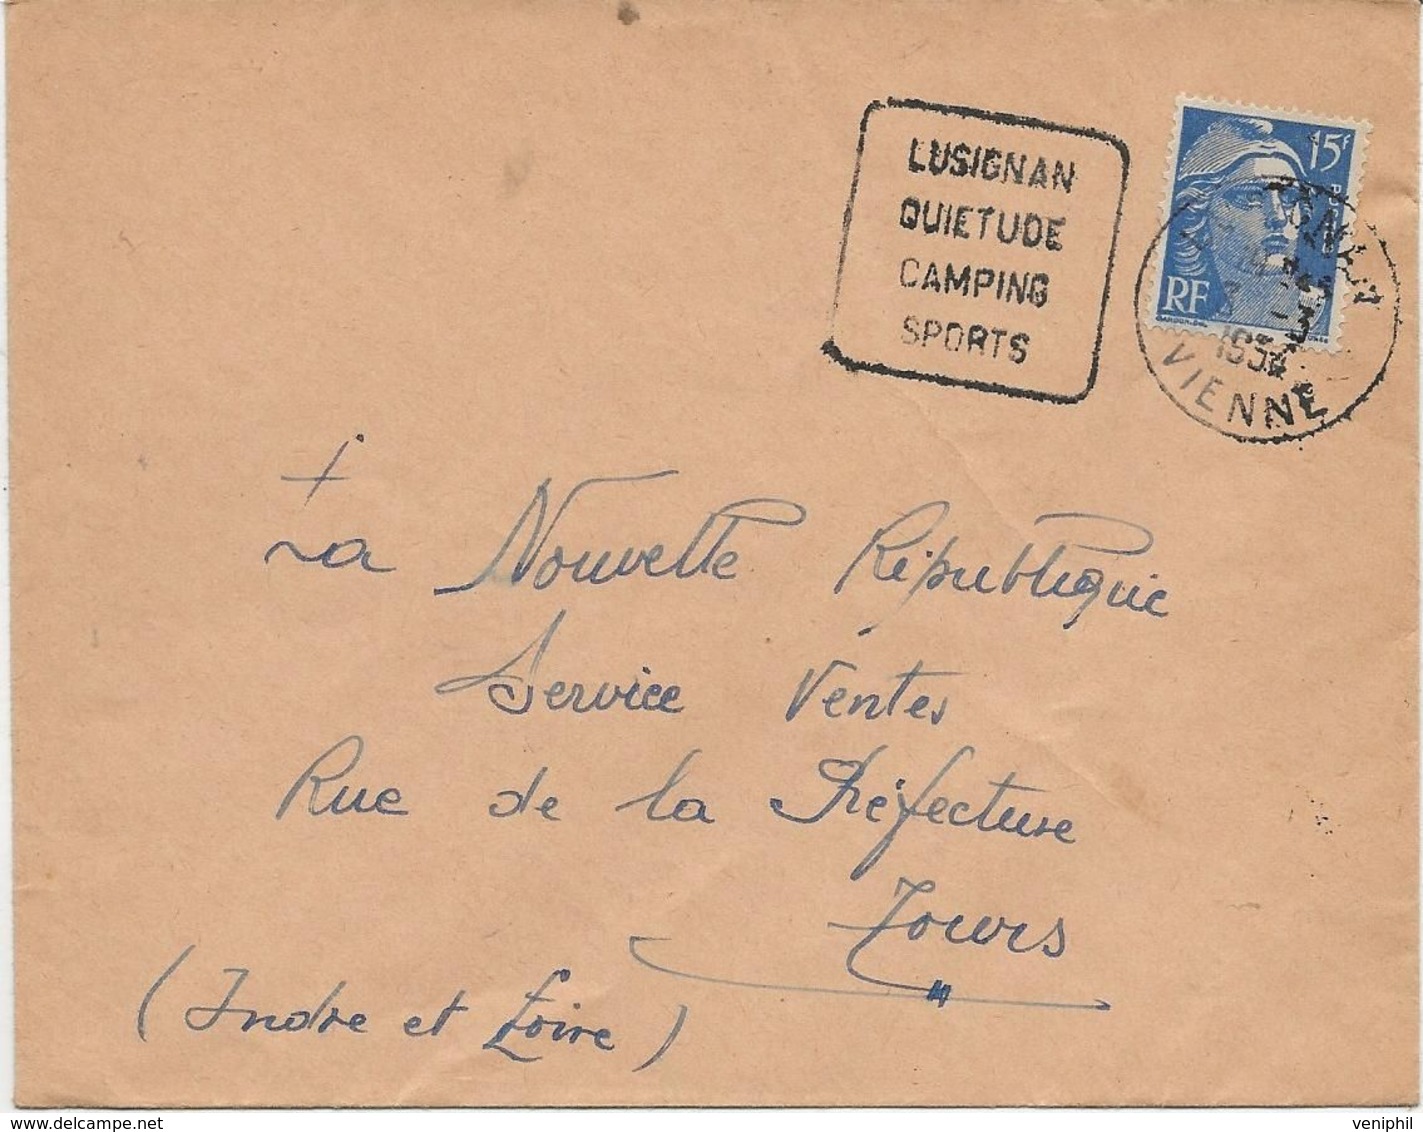 LUSIGNAN
QUIETUDE
CAMPING
SPORTS
15F
RF
VIENNE
La Nouvelle République
Service Ventes
Rue de la Préfecture
Tours
(Indre et Loire)
delcampe.net
veniphil